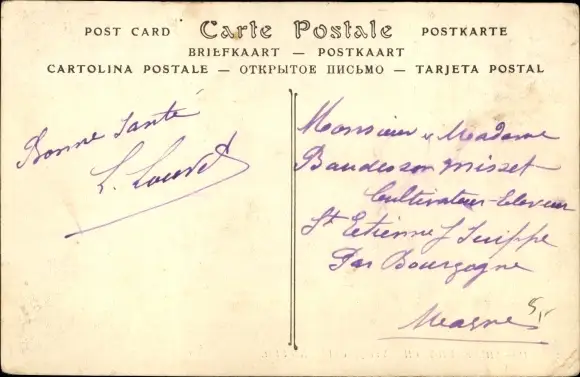 POST CARD Carte Postale POSTKARTE
BRIEFKAART — POSTKAART
CARTOLINA POSTALE — ОТКРЫТОЕ ПИСЬМО — TARJETA POSTAL
Bonne Santé
L. Louvet
Monsieur & Madame
Baudesson Misset
Cultivateur-Eleveur
St Etienne s/ Suippe
Par Bourgogne
Marne